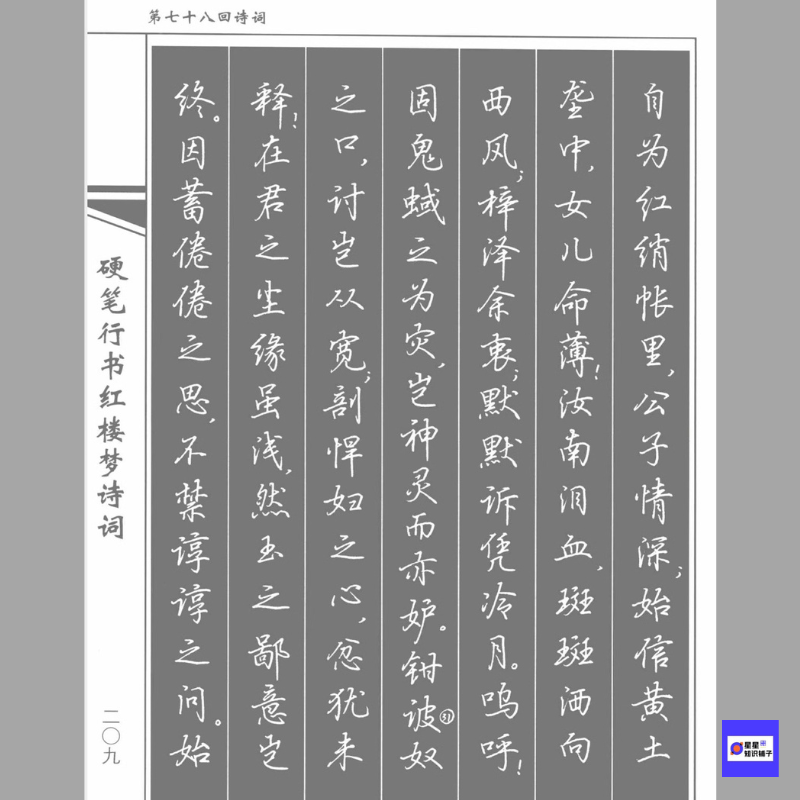 第七十八回诗词
自为红绡帐里，公子情深；始信黄土
垄中，女儿命薄！汝南泪血，斑斑洒向
西风；梓泽余衷，默默诉凭冷月。呜呼！
固鬼蜮之为灾，岂神灵而亦妒。钳诐奴
之口，讨岂从宽；剖悍妇之心，忿犹未
释！在君之尘缘虽浅，然玉之鄙意岂
终。因蓄惓惓之思，不禁谆谆之问。始
硬笔行书红楼梦诗词
二〇九
星星
知识铺子